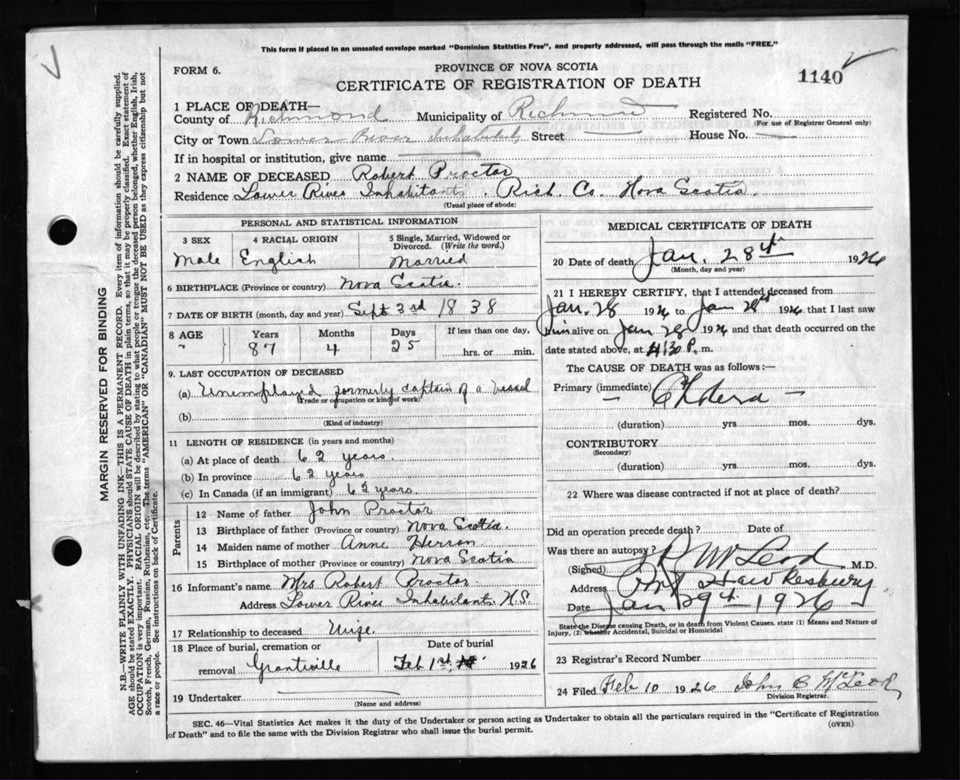 This form if placed in an unsealed envelope marked "Dominion Statistics Free", and properly addressed, will pass through the mails "FREE."
FORM 6.
PROVINCE OF NOVA SCOTIA
CERTIFICATE OF REGISTRATION OF DEATH
1140
1 PLACE OF DEATH—
County of Richmond Municipality of Richmond Registered No.
(For use of Registrar General only)
City or Town Lower River Inhabitants Street House No.
If in hospital or institution, give name
2 NAME OF DECEASED Robert Proctor
Residence Lower River Inhabitants. Rich. Co. Nova Scotia
(Usual place of abode)
PERSONAL AND STATISTICAL INFORMATION
3 SEX 4 RACIAL ORIGIN 5 Single, Married, Widowed or Divorced. (Write the word.)
Male English Married
6 BIRTHPLACE (Province or country) Nova Scotia
7 DATE OF BIRTH (month, day and year) Sept 3rd 1838
8 AGE Years Months Days If less than one day,
" 87 4 25 hrs. or min.
9. LAST OCCUPATION OF DECEASED
(a) Unemployed formerly captain of a vessel
(Trade or occupation or kind of work)
(b)
(Kind of industry)
11 LENGTH OF RESIDENCE (in years and months)
(a) At place of death 62 years.
(b) In province 62 years
(c) In Canada (if an immigrant) 62 years
Parents
12 Name of father John Proctor
13 Birthplace of father (Province or country) Nova Scotia.
14 Maiden name of mother Anne Herron
15 Birthplace of mother (Province or country) Nova Scotia
16 Informant's name Mrs Robert Proctor
Address Lower River Inhabitants N.S.
17 Relationship to deceased Wife.
18 Place of burial, cremation or removal Grantville
Date of burial Feb 1st 1926
19 Undertaker
(Name and address)
MEDICAL CERTIFICATE OF DEATH
20 Date of death Jan. 28th 1926
(Month, day and year)
21 I HEREBY CERTIFY, that I attended deceased from
Jan. 28 1926 to Jan 28th 1926 that I last saw
him alive on Jan 28 1926 and that death occurred on
date stated above, at 4.30 P. m.
The CAUSE OF DEATH was as follows:—
Primary (immediate)
(duration) yrs. mos. dys.
CONTRIBUTORY
(Secondary)
(duration) yrs. mos. dys.
22 Where was disease contracted if not at place of death?
Did an operation precede death? Date of
Was there an autopsy?
(Signed) McLeod M.D.
Address Port Hawkesbury
Date Jan 29th 1926
State the Disease causing Death, or in death from Violent Causes, state (1) Means and Nature of
Injury, (2) whether Accidental, Suicidal or Homicidal
23 Registrar's Record Number
24 Filed Feb 10 1926 John C McLeod
Division Registrar.
SEC. 46—Vital Statistics Act makes it the duty of the Undertaker or person acting as Undertaker to obtain all the particulars required in the "Certificate of Registration
of Death" and to file the same with the Division Registrar who shall issue the burial permit.
(OVER)
MARGIN RESERVED FOR BINDING
N.B.—WRITE PLAINLY WITH UNFADING INK—THIS IS A PERMANENT RECORD. Every item of information should be carefully supplied.
AGE should be stated EXACTLY. PHYSICIANS should STATE CAUSE OF DEATH in plain terms, so that it may be properly classified. Exact statement of
OCCUPATION is very important. RACIAL ORIGIN will be described by stating to what people or tongue the deceased person belonged, whether English, Irish,
Scotch, French, German, Russian, Ruthenian, etc. The terms "AMERICAN" or "CANADIAN" MUST NOT BE USED as they express citizenship but not
a race or people. See instructions on back of Certificate.